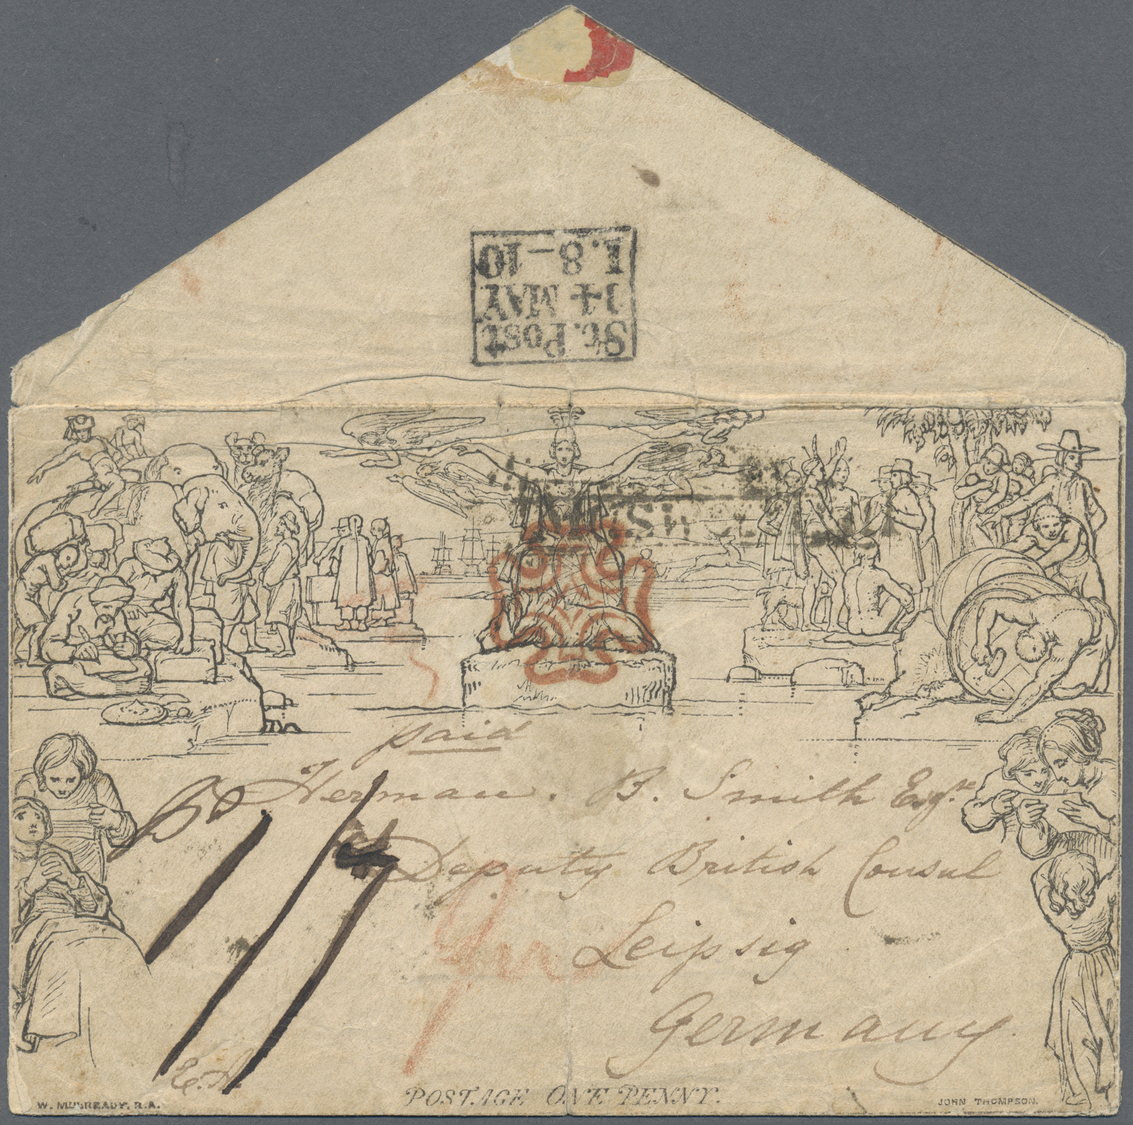 St. Post
14 MAY.
I. 8-10
paid
Herman. B. Smith Esqre
Deputy British Consul
Leipsig
Germany
POSTAGE ONE PENNY.
W. MULREADY, R.A.
JOHN THOMPSON.